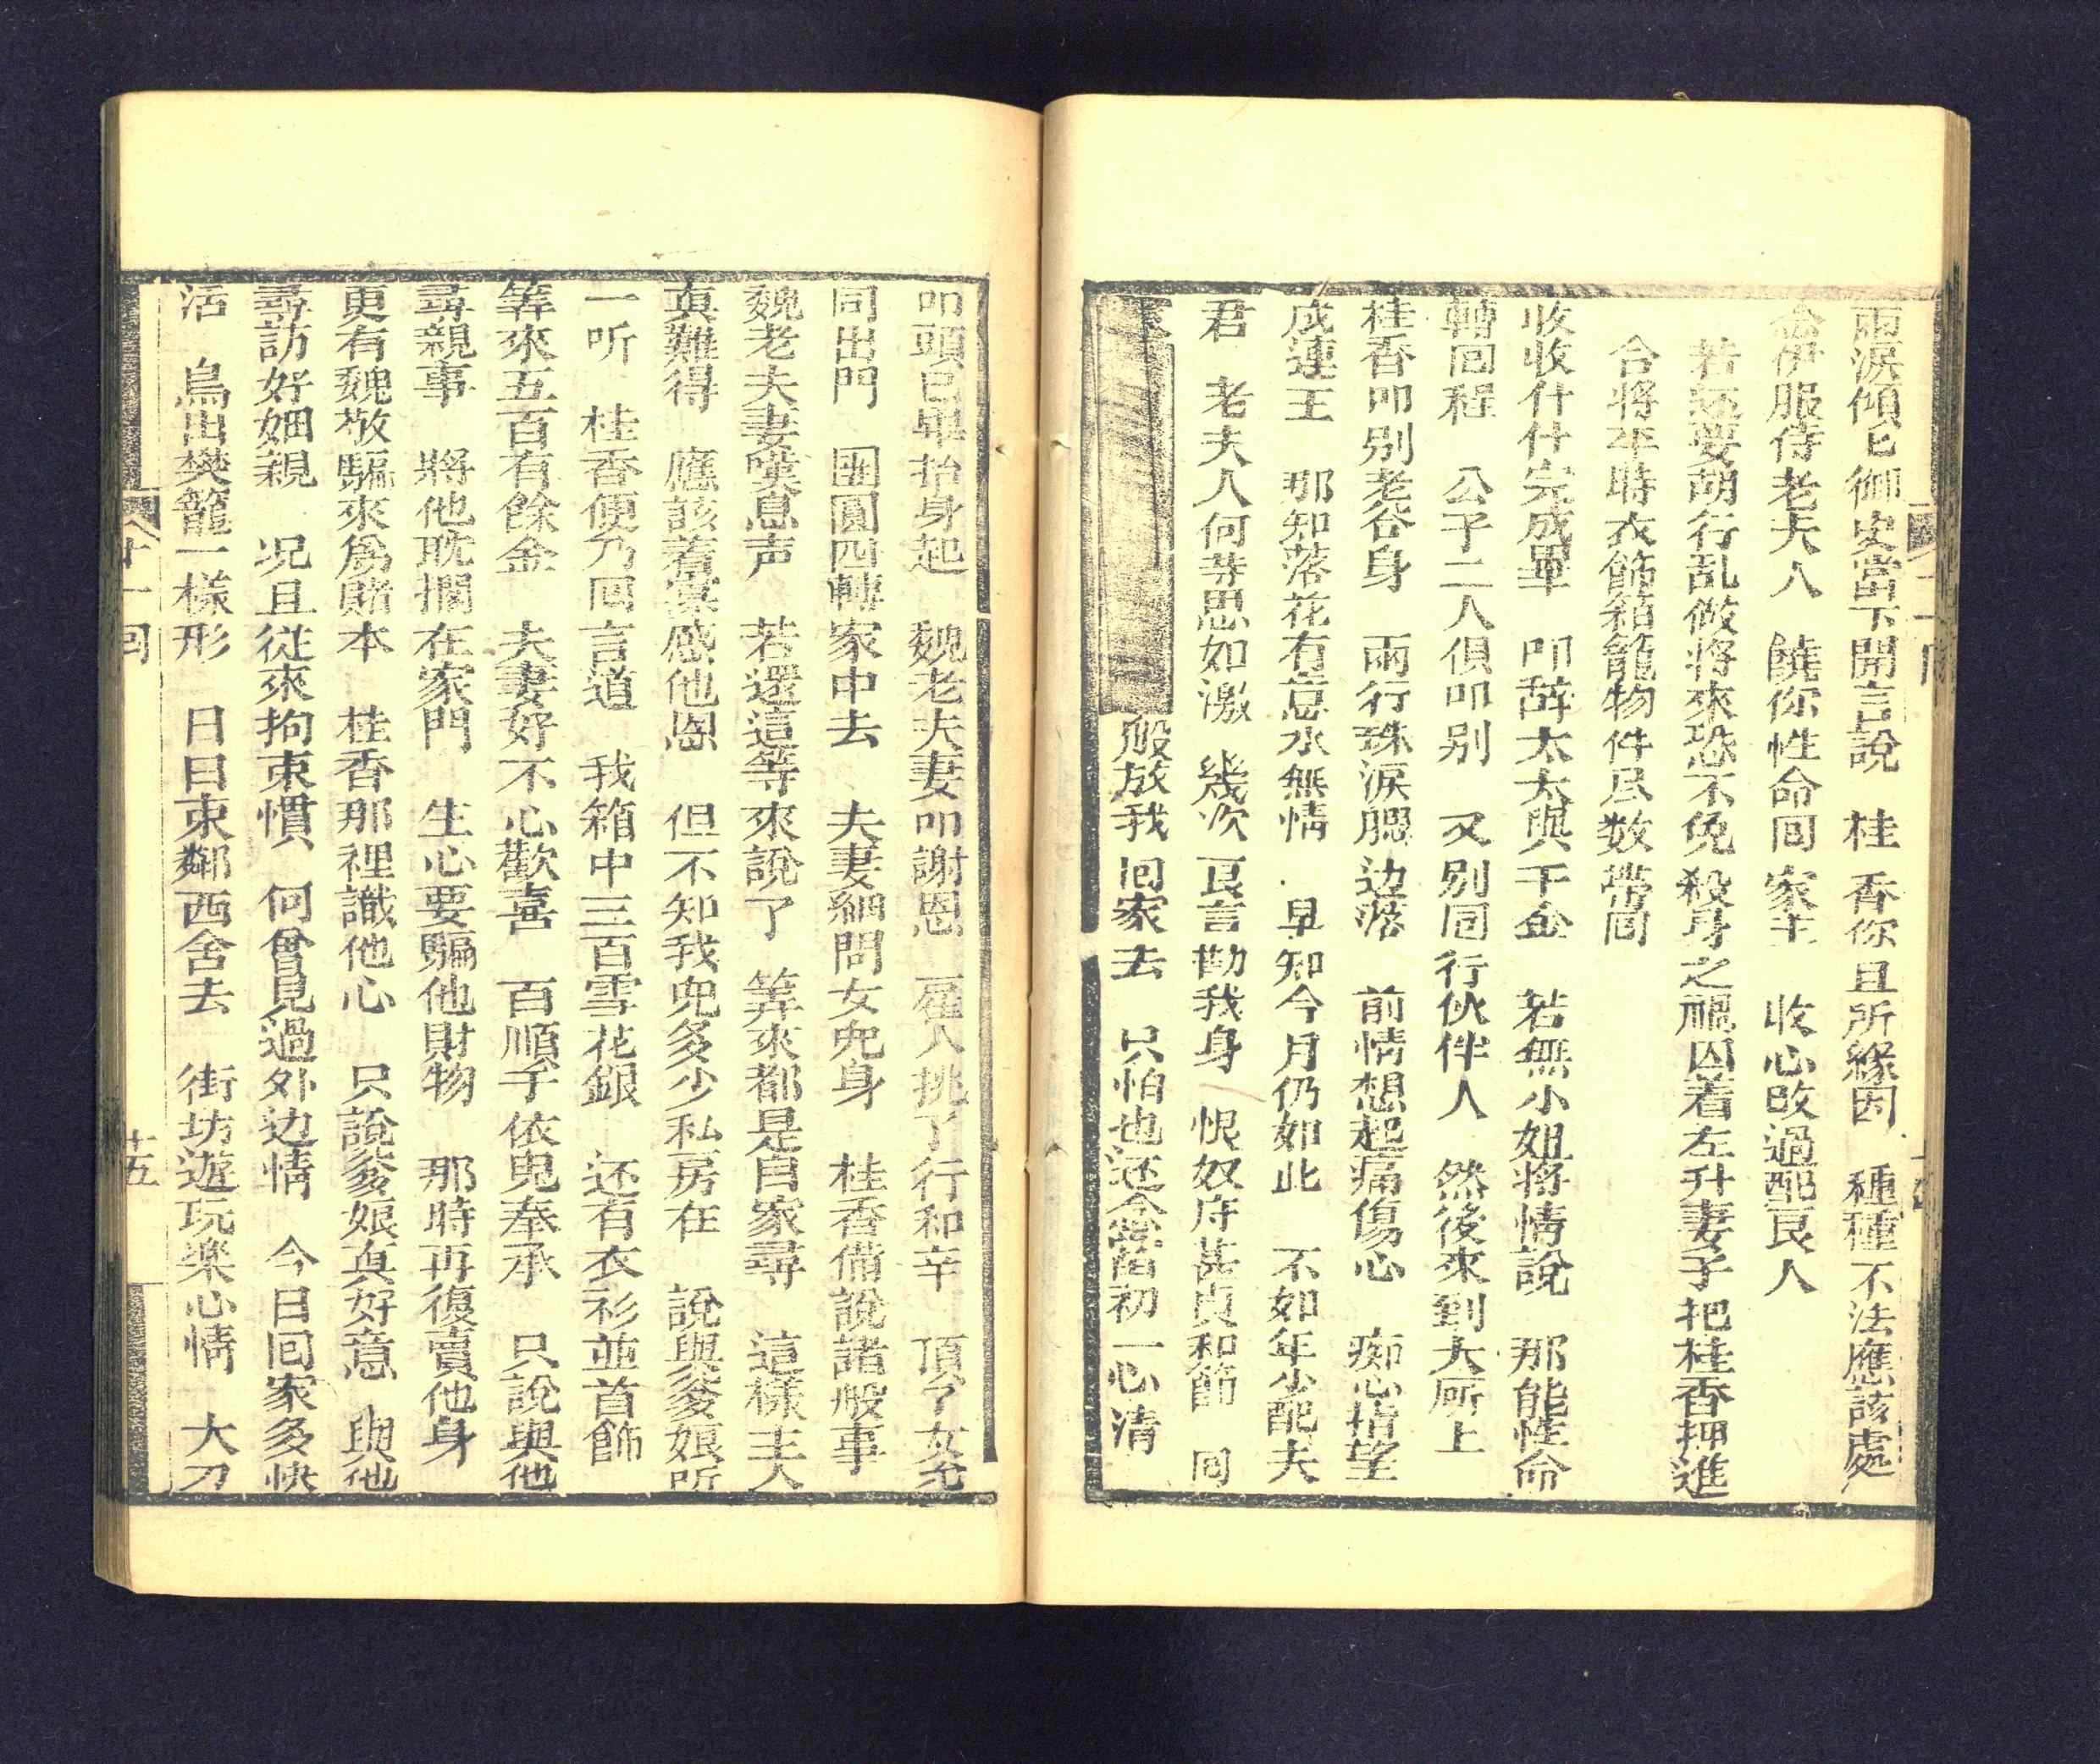 雨淚傾匕御史當下開言說　桂香你且听緣因　種種不法應該處
命伊服侍老夫人　饒你性命回家主　收心改過配良人
若还要胡行乱做将來恐不免殺身之禍因着左升妻子把桂香押進
合将平時衣飾箱籠物件尽数帶回
收收什什完成單　叩辞太太與千金　若無小姐将情說　那能性命
轉回程　公子二人俱叩别　又别同行伙伴人　然後來到大厛上
桂香叩别老爷身　兩行珠淚腮边落　前情想起痛傷心　痴心指望
成連王　那知落花有意水無情　早知今月仍如此　不如年少配夫
君　老夫人何等思如激　幾次良言勸我身　恨奴序甚貞和節　同
般放我回家去　只怕也还念當初一心清
叩頭已畢抬身起　魏老夫妻叩謝恩　雇人挑了行和辛　頂了女兒
同出門　團圓四轉家中去　夫妻細問女兒身　桂香備說諸般事
魏老夫妻嘆息声　若還這等來說了　筭來都是自家尋　這樣主人
真難得　應該着寔感他恩　但不知我兒多少私房在　說與爹娘听
一听　桂香便乃回言道　我箱中三百雪花銀　还有衣衫並首飾
筭來五百有餘金　夫妻好不心歡喜　百順千依兒奉承　只說與他
尋親事　將他耽擱在家門　生心要騙他財物　那時再復賣他身
更有魏敬騙來為賭本　桂香那裡識他心　只說爹娘真好意　與他
尋訪好姻親　况且從來拘束慣　何曾見過外边情　今日回家多快
活　鳥出樊籠一樣形　日日東鄰西舍去　街坊遊玩楽心情　大刀
廿一回
十五